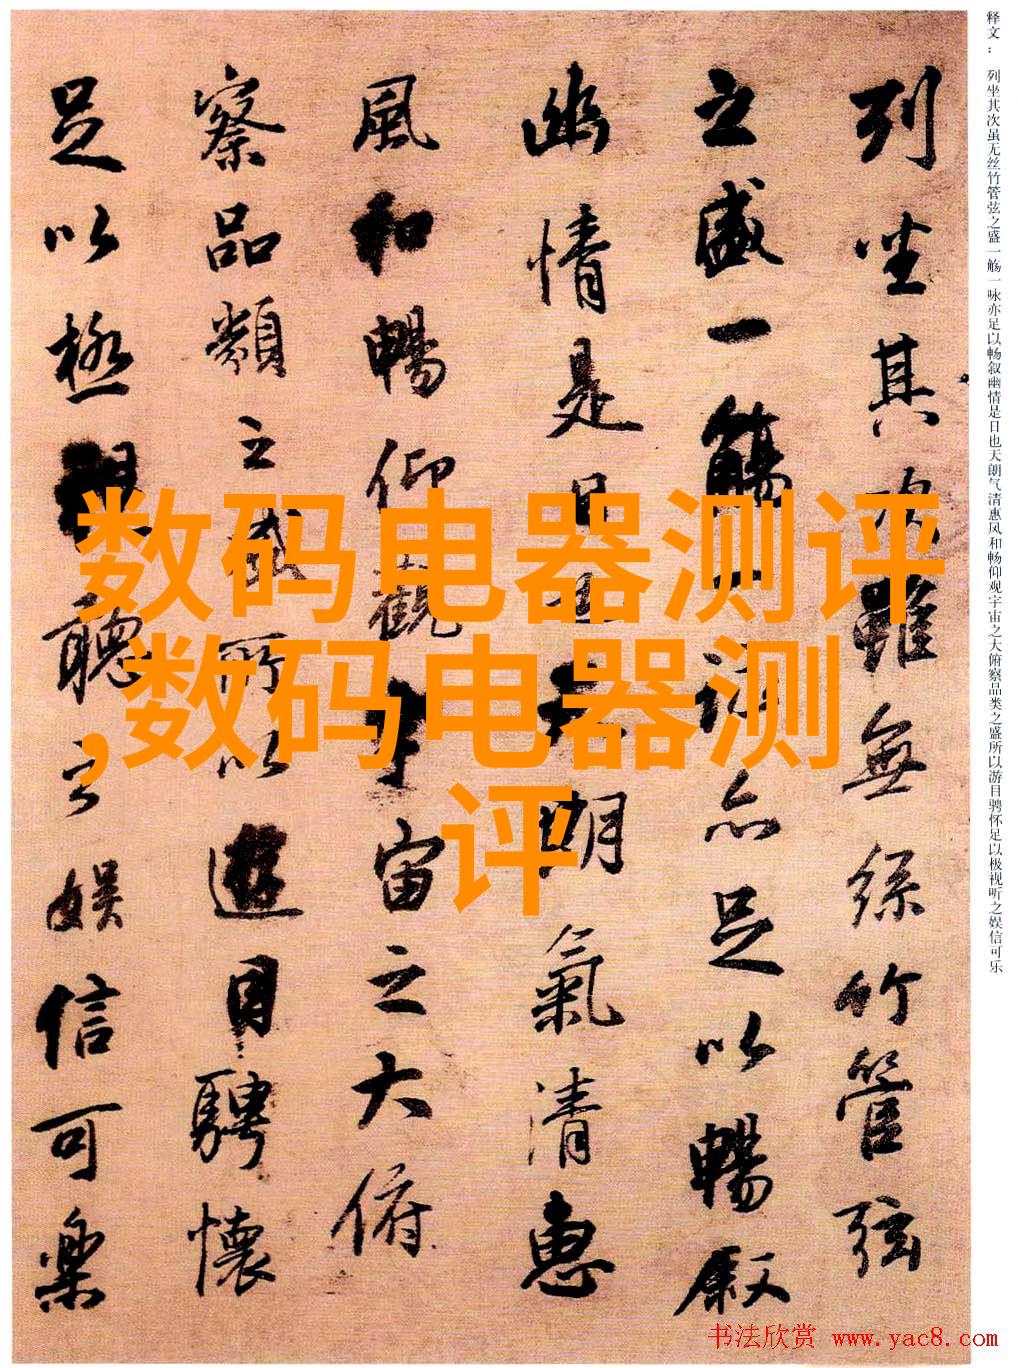 列坐其次雖無絲竹管弦
之盛一觴一詠亦足以暢叙
幽情是日也天朗氣清惠
風和暢仰觀宇宙之大俯
察品類之盛所以遊目騁懷
足以極視聽之娛信可樂
释文： 列坐其次虽无丝竹管弦之盛一觞一咏亦足以畅叙幽情是日也天朗气清惠风和畅仰观宇宙之大俯察品类之盛所以游目骋怀足以极视听之娱信可乐
数码电器测评
,数码电器测
评
书法欣赏 www.yac8.com